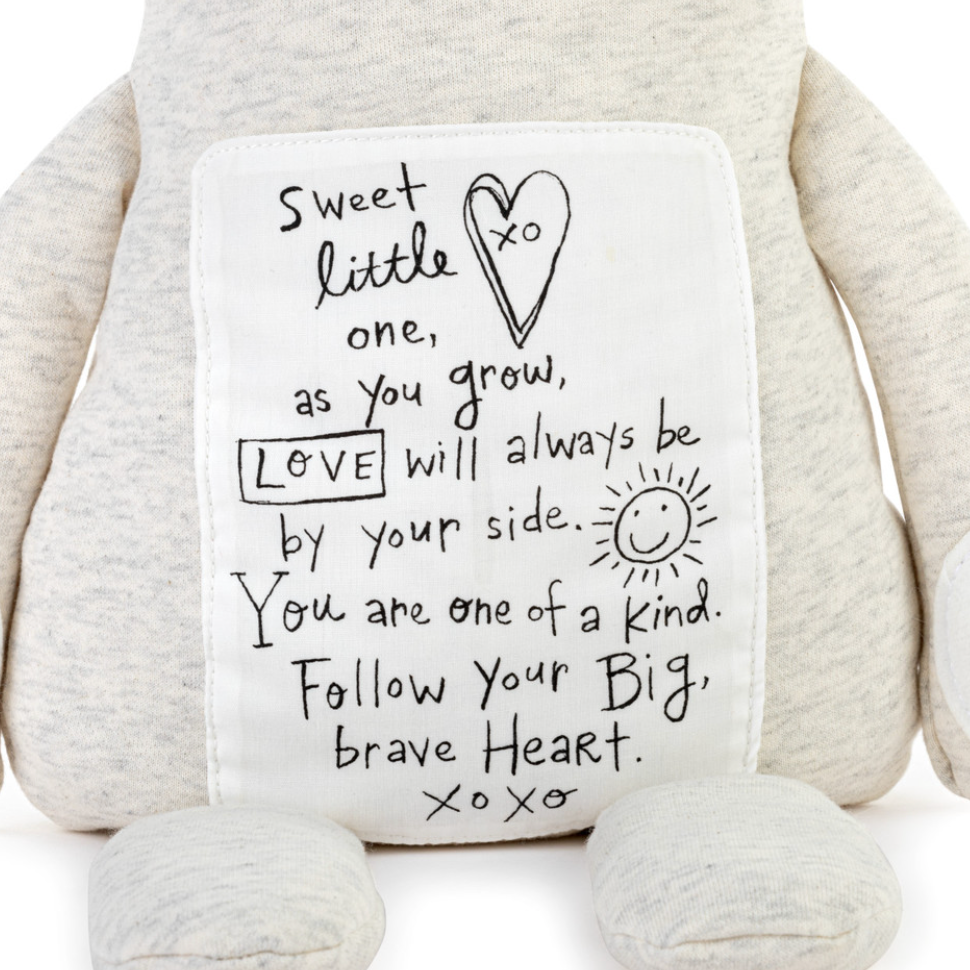 Sweet
little
XO
one,
as you grow,
LOVE will always be
by your side.
You are one of a kind.
Follow your Big,
brave HeaRt.
xoxo